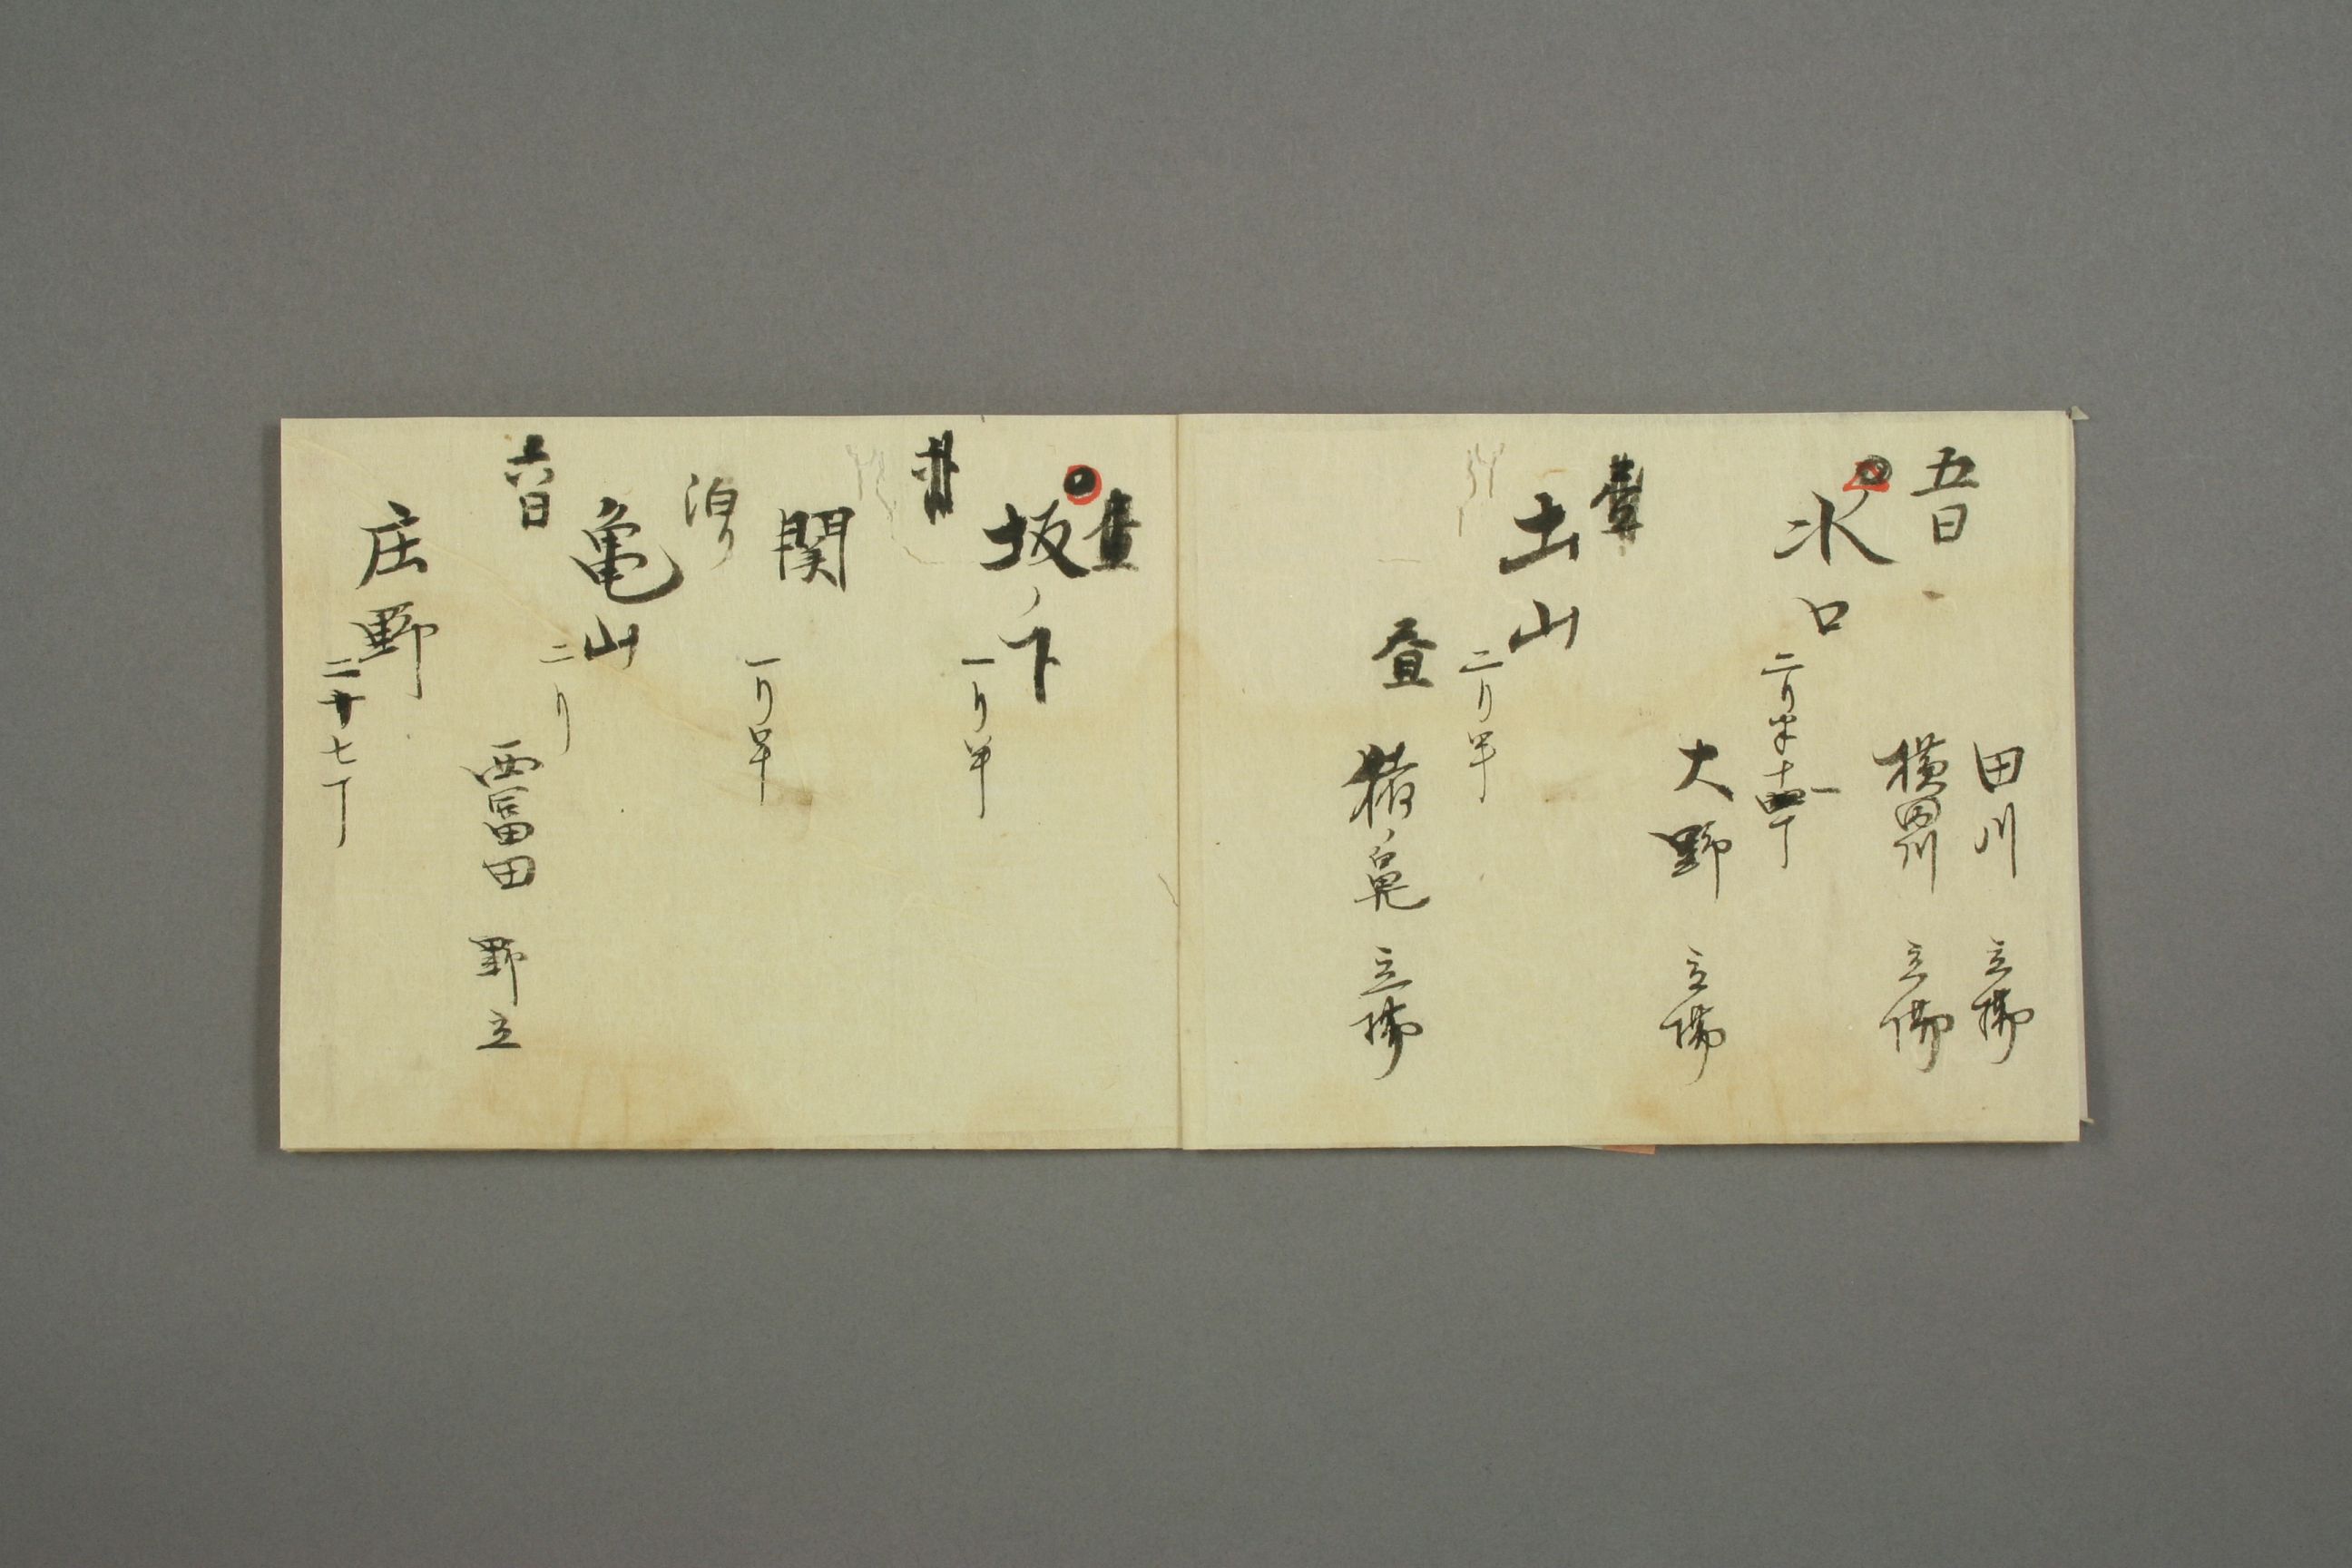 田川　立場
横田川　立場
五日
水口
二り半十一丁
大野　立場
土山
二り半
昼　猪ノ鼻　立場
坂ノ下
一り半
関
一り半
泊り
亀山
二り
六日
西冨田　野立
庄野
二十七丁